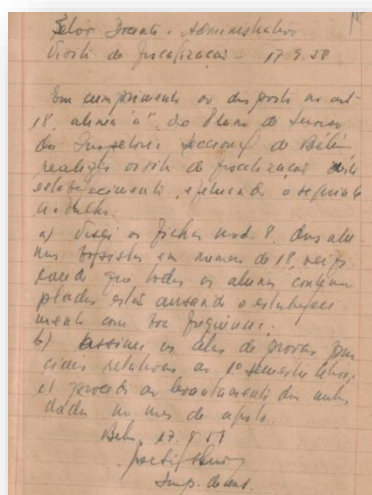 Setor Docente e Administrativo
Visita de fiscalização - 17.9.58
Em cumprimento ao disposto no art.
18, alinea "a", do Plano de Serviço
da Inspetoria Seccional de Belém,
realizei visita de fiscalização neste
estabelecimento, efetuando o seguinte
trabalho:
a) Visei as fichas mod. 8, dos alu-
nos bolsistas em numero de 18, veri-
ficando que todos os alunos contem-
plados estão cursando o estabeleci-
mento com boa frequência.
b) Assinei as atas de provas par-
ciais relativas ao 1º semestre letivo,
c) procedi ao levantamento das aulas
dadas no mes de agosto.
Belém, 17.9.58
Insp. de ens.